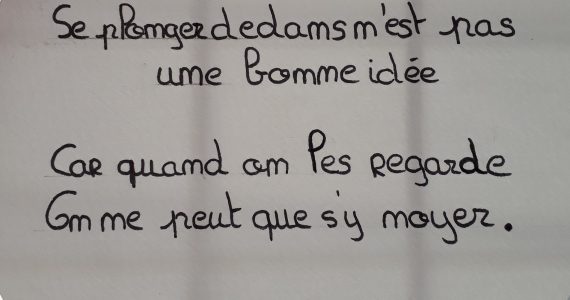 Se plonger dedans n'est pas
une bonne idée
Car quand on les regarde
On ne peut que s'y noyer.